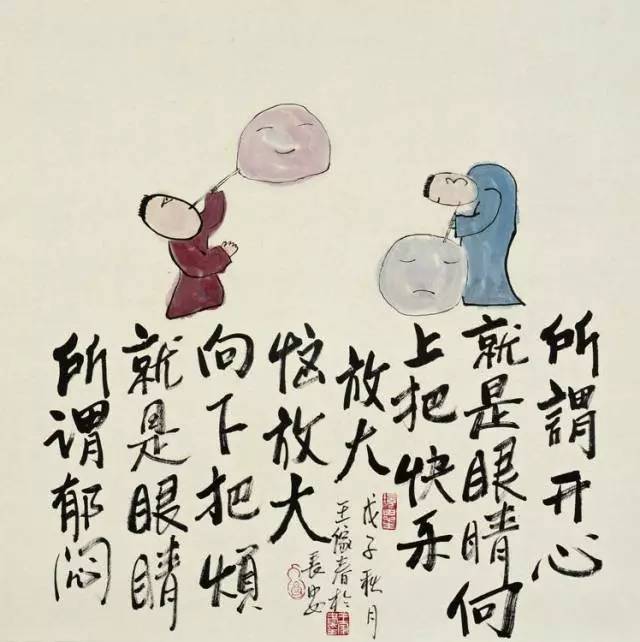 所謂开心
就是眼睛向
上把快乐
放大
所谓郁闷
就是眼睛
向下把煩
恼放大
戊子秋月
王傢春於
長安